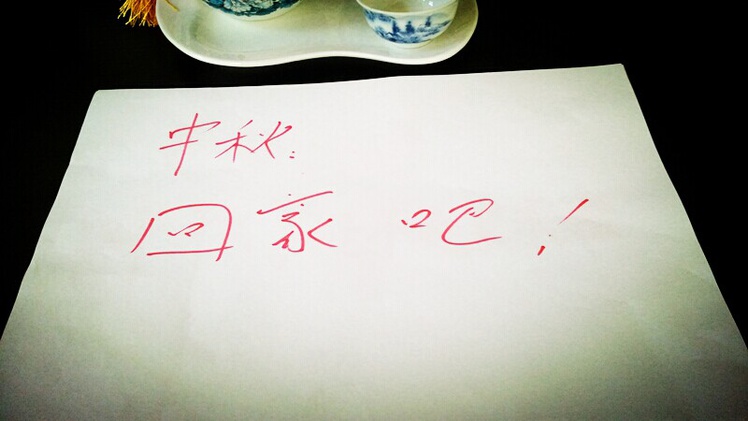 中秋:
回家吧!